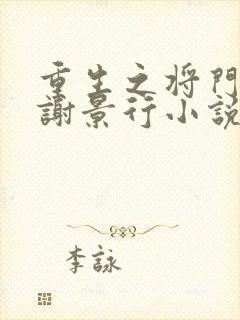 重生之将門
謝景行小説
李詠